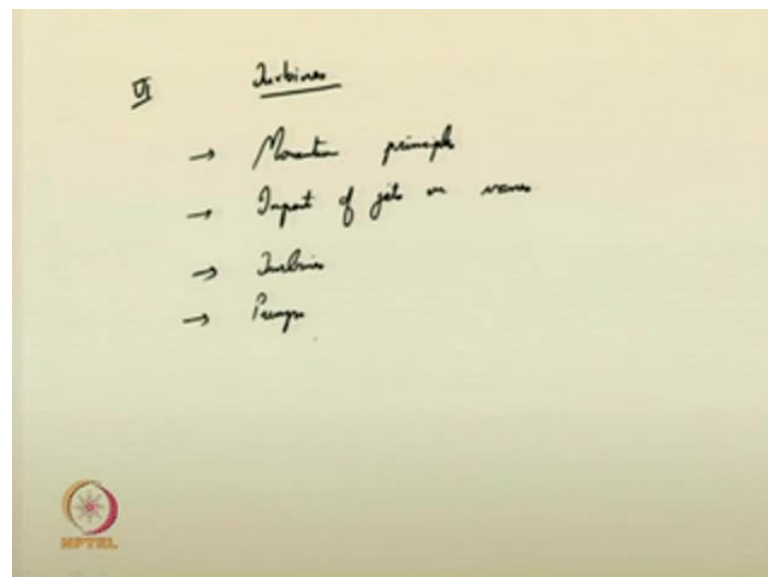 VI Turbines
→ Momentum principle
→ Impact of jets on vanes
→ Turbines
→ Pumps
NPTEL